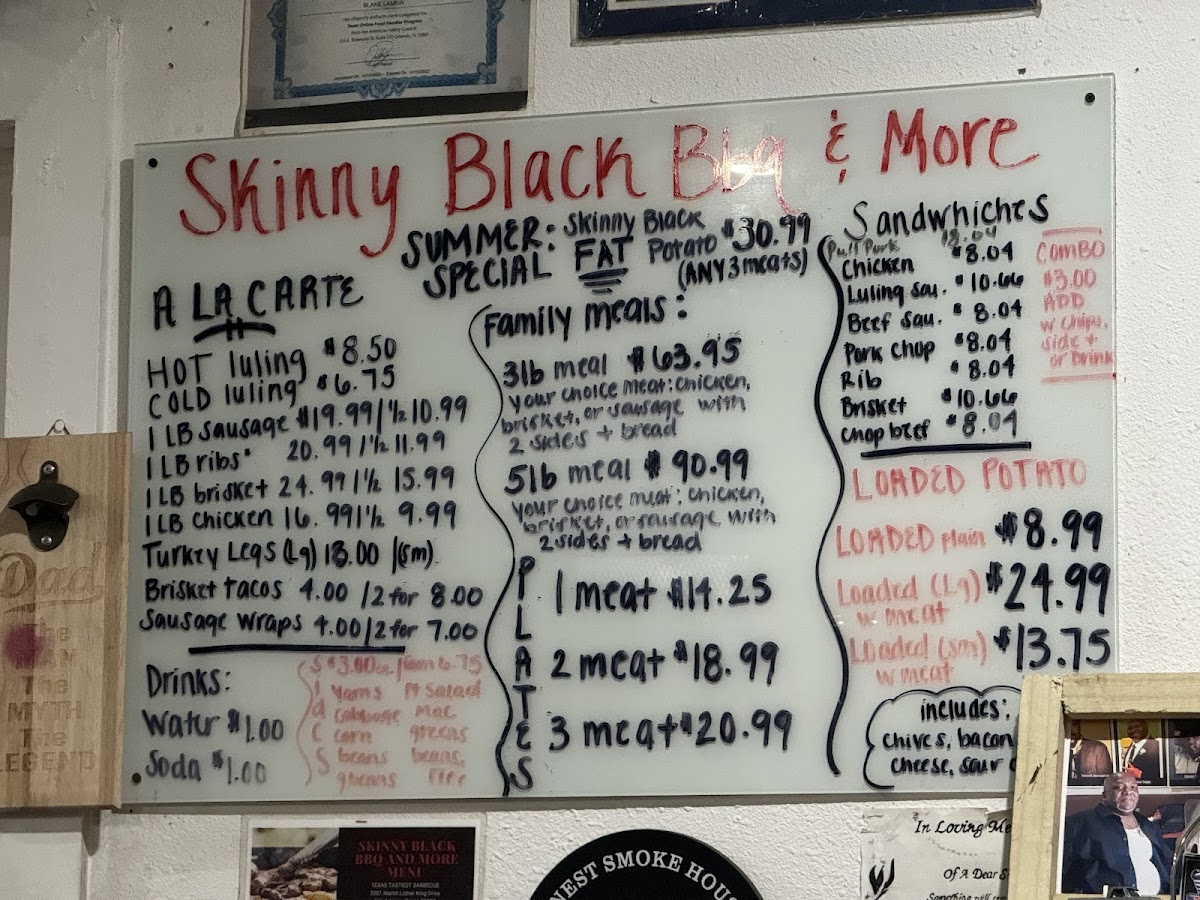 BLAKE LAMKIN
Skinny Black Bbq & More
SUMMER: Skinny Black
SPECIAL FAT Potato $30.99
(ANY 3 meats)
A LA CARTE
HOT luling $8.50
COLD luling $6.75
1 LB sausage $19.99/1/2 10.99
1 LB ribs 20.99/1/2 11.99
1 LB brisket 24.99/1/2 15.99
1 LB chicken 16.99/1/2 9.99
Turkey Legs (Lg) 13.00 /(sm)
Brisket tacos 4.00 /2 for 8.00
Sausage wraps 4.00/2 for 7.00
Drinks:
Water $1.00
Soda $1.00
Sides
yams Pt Salad
cabbage Mac
corn greens
beans beans,
gbeans rice
Family meals:
3lb meal $63.95
your choice meat: chicken,
brisket, or sausage with
2 sides + bread
5lb meal $90.99
your choice meat: chicken,
brisket, or sausage with
2 sides + bread
PLATES
1 meat $14.25
2 meat $18.99
3 meat $20.99
Sandwhiches
Pull Pork $8.04
Chicken $8.04
Luling Sau. $10.66
Beef Sau. $8.04
Pork Chop $8.04
Rib $8.04
Brisket $10.66
Chop beef $8.04
COMBO
$3.00
ADD
w chips,
side +
or Drink
LOADED POTATO
LOADED plain $8.99
Loaded (Lg) $24.99
w meat
Loaded (sm) $13.75
w meat
includes:
chives, bacon
cheese, sour
Dad
The
MAN
The
MYTH
The
LEGEND
SKINNY BLACK
BBQ AND MORE
MENU
TEXAS TASTIEST BARBECUE
NEST SMOKE HOUS
In Loving Me
Of A Dear S
Something will